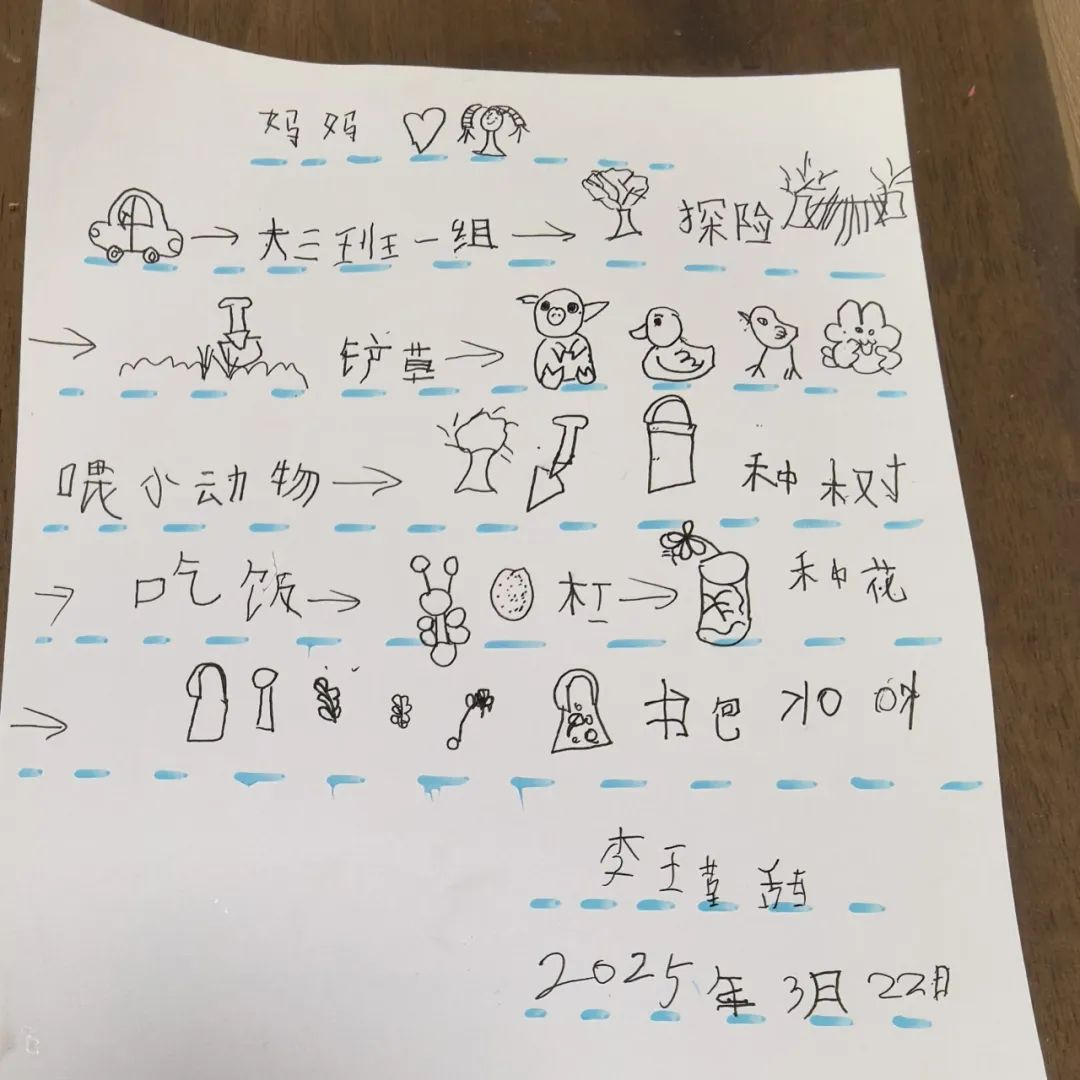 妈妈
大三班一组 探险
铲草
喂小动物 种树
吃饭 种花
书包
李
2025年3月22日